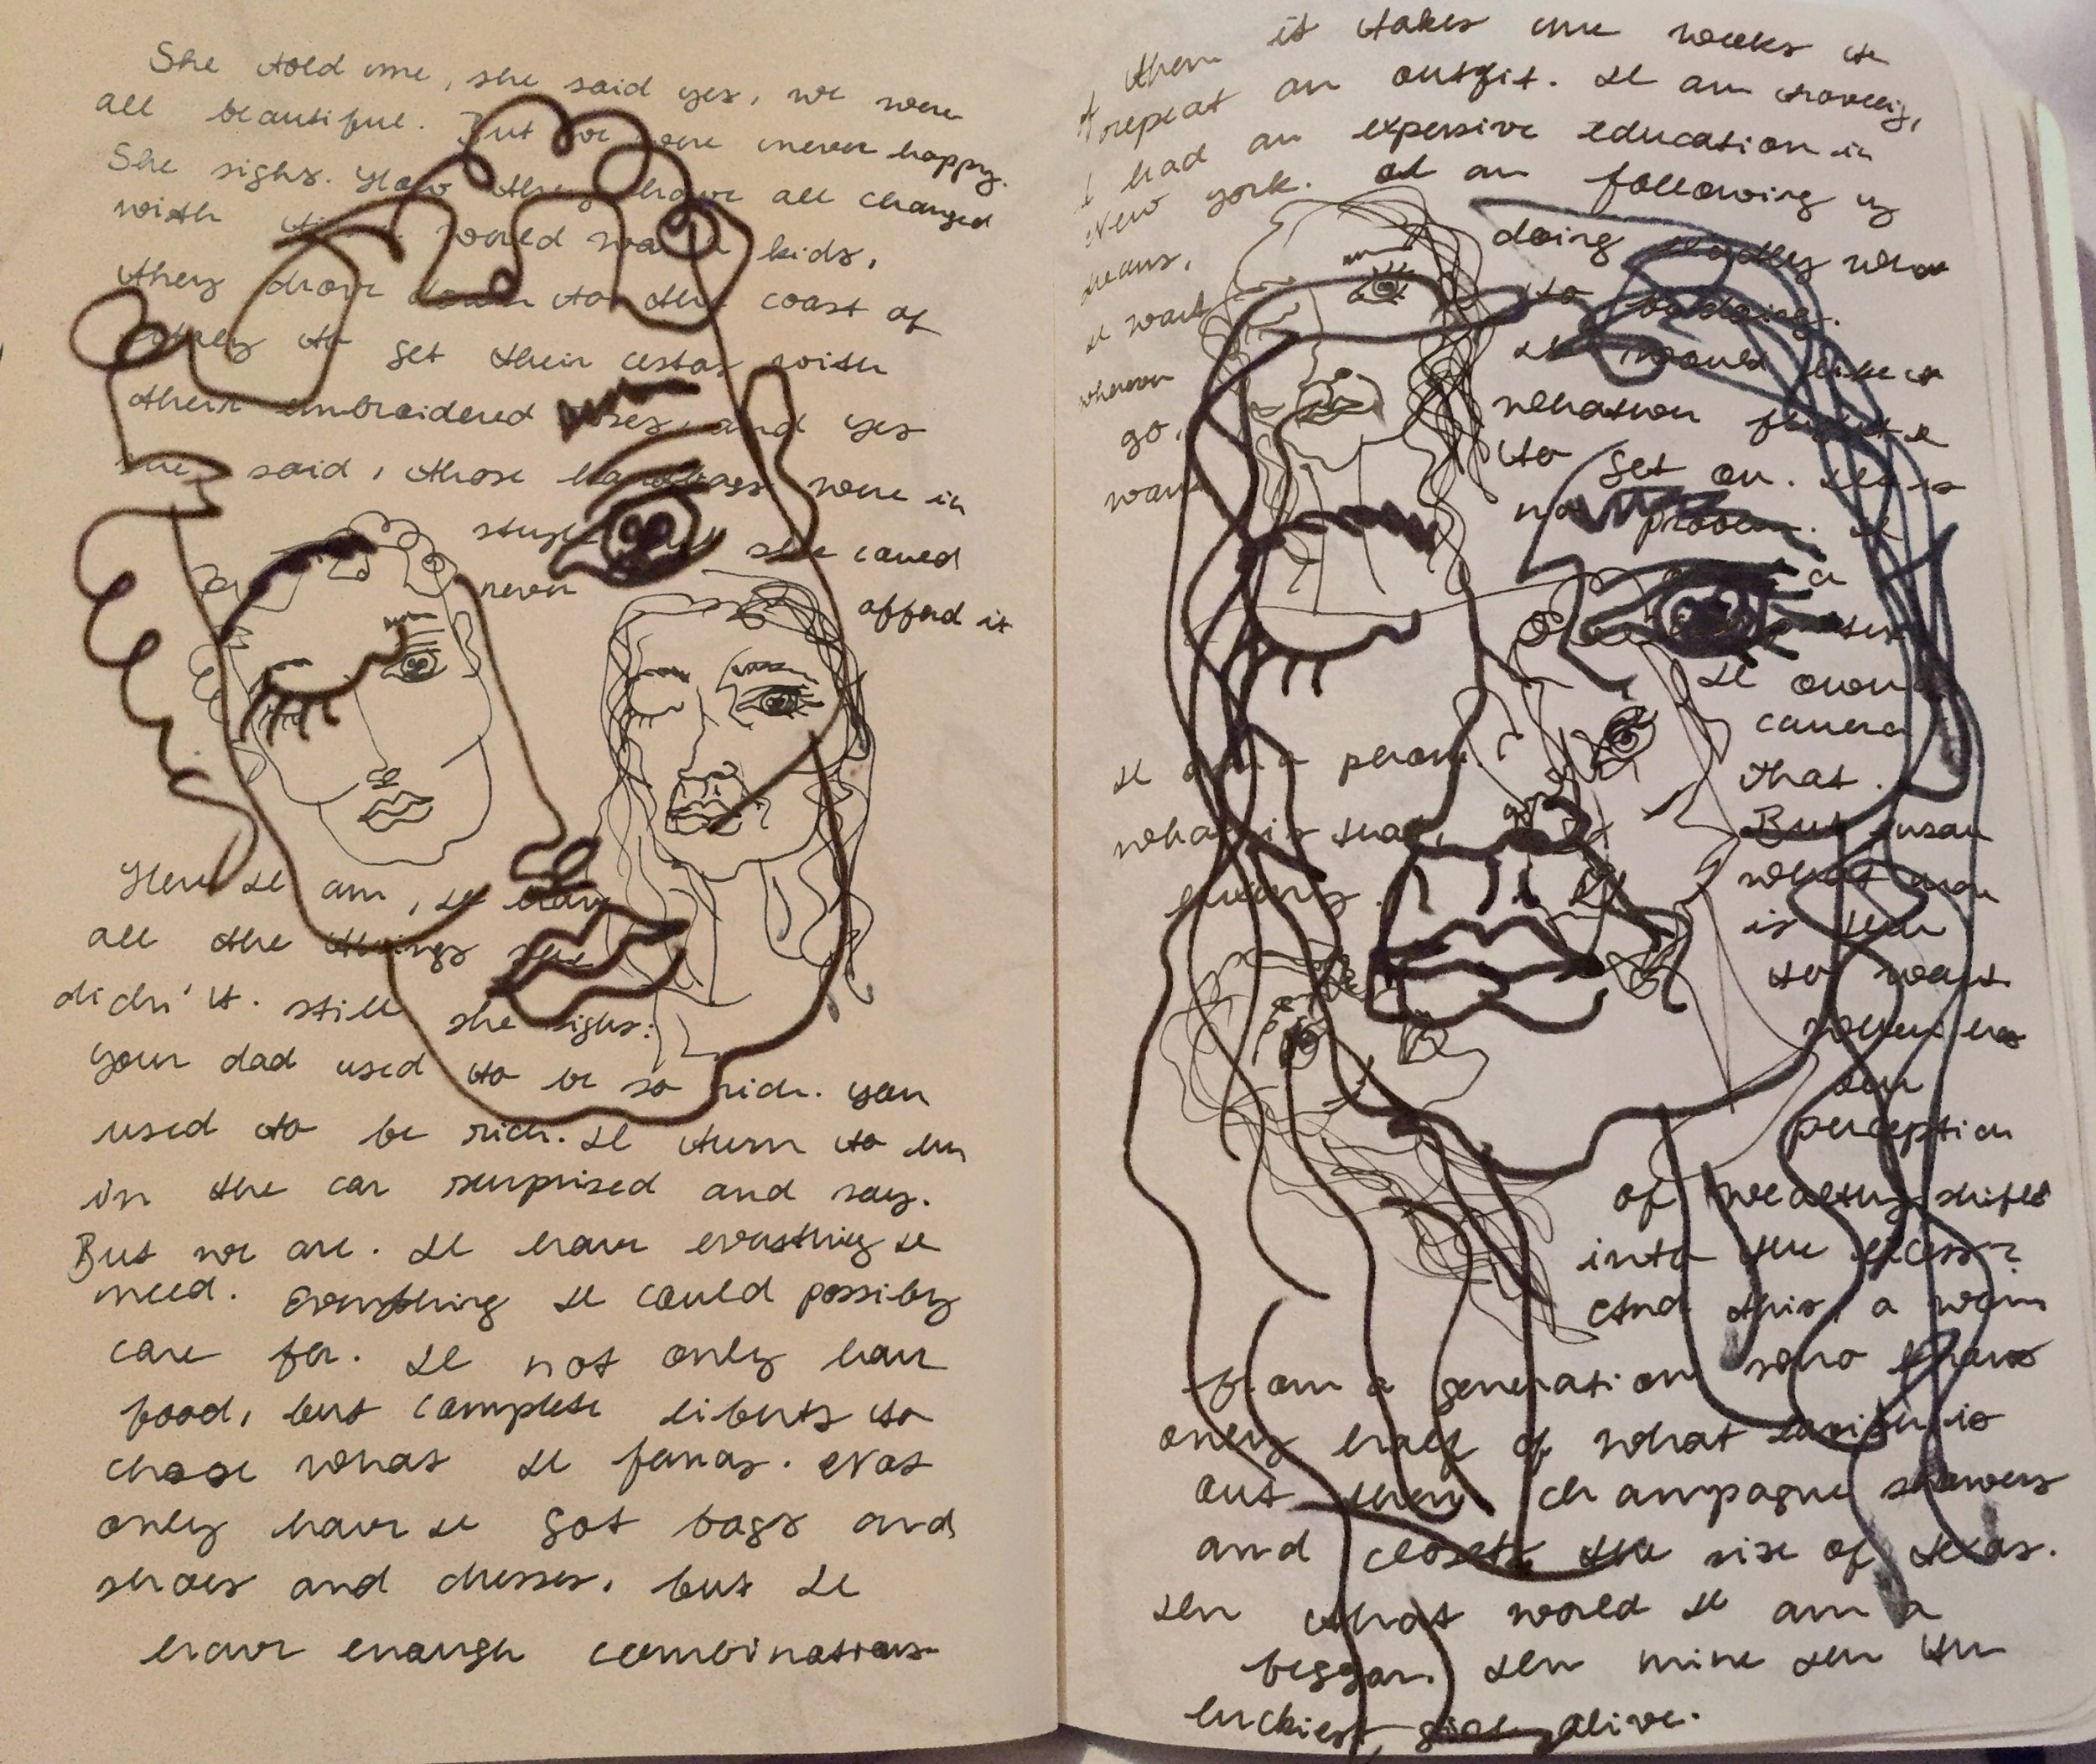 She told me, she said yes, we were
all beautiful. But we were never happy.
She sighs. How they have all changed
with world kids,
they drove down to the coast of
Italy to get their cestas with
their embroidered roses, and yes
she said, those handbags were in
style but she could
never afford it
Here I am, I have
all the things she
didn't. Still she sighs:
your dad used to be so rich. You
used to be rich. I turn to her
in the car surprised and say.
But we are. I have everything I
need. Everything I could possibly
care for. I not only have
food, but complete liberty to
chose what I fancy. Not
only have I got bags and
shoes and dresses, but I
have enough combinations
then it takes me weeks to
repeat an outfit. I am
I had an expensive education in
New York. am following my
dreams, doing exactly what
I want to be doing.
wherever I would like to
go, whatever flight I
want to get on. It is
no problem. I
a
I own
I am a person camera
what is that, that.
But
what
is
to want
when has
our
perception
of wealth shifted
into the excess?
And this, a
from a generation who knows
only half of what is
out there champagne showers
and closets the size of texas.
In that world I am a
beggar. In mine I'm the
luckiest girl alive.